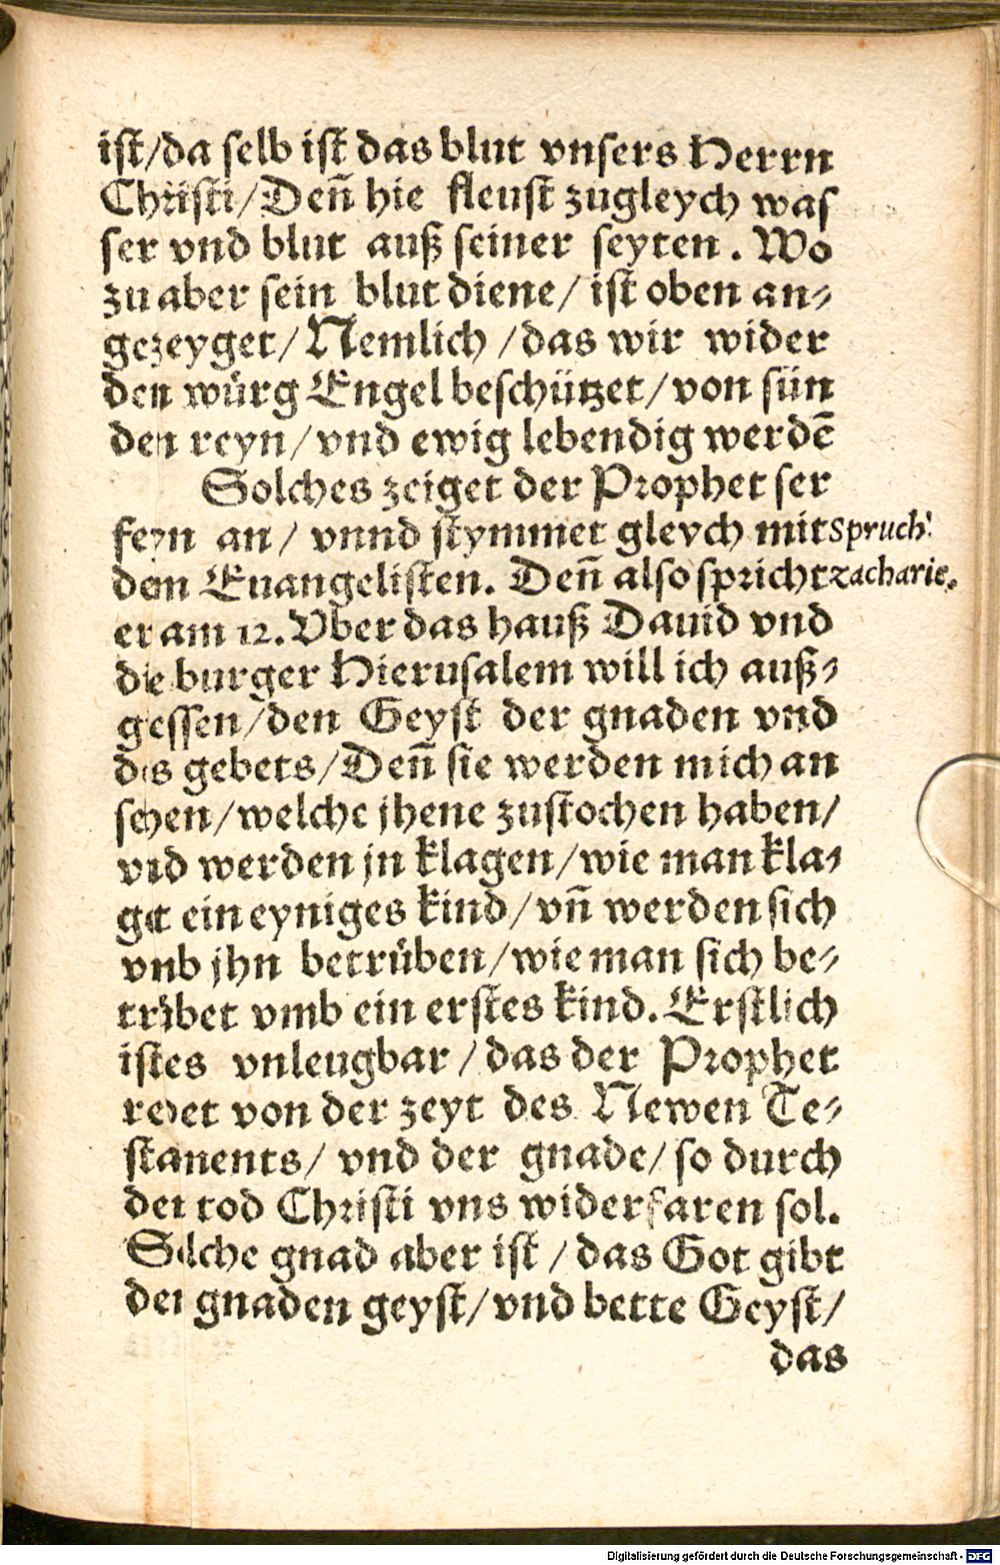 ist/da selb ist das blut vnsers Herrn
Christi/Deñ hie fleust zugleych was
ser vnd blut auß seiner seyten. Wo
zu aber sein blut diene/ ist oben an-
gezeyget/Nemlich /das wir wider
den würg Engel beschützet/von sün
den reyn/vnd ewig lebendig werdē
Solches zeiget der Prophet ser
fern an/ vnnd stymmet gleych mit
Spruch
dem Euangelisten. Deñ also spricht
zacharie.
er am 12. Vber das hauß Dauid vnd
die burger Hierusalem will ich auß-
giessen/den Geyst der gnaden vnd
des gebets/Deñ sie werden mich an
sehen/welche jhene zustochen haben/
vnd werden jn klagen/wie man kla-
get ein eyniges kind/vñ werden sich
vmb jhn betrüben/wie man sich be-
trübet vmb ein erstes kind. Erstlich
ist es vnleugbar/das der Prophet
redet von der zeyt des Newen Te-
staments/ vnd der gnade/so durch
den tod Christi vns widerfaren sol.
Solche gnad aber ist /das Got gibt
den gnaden geyst/vnd bette Geyst/
das
Digitalisierung gefördert durch die Deutsche Forschungsgemeinschaft - DFG